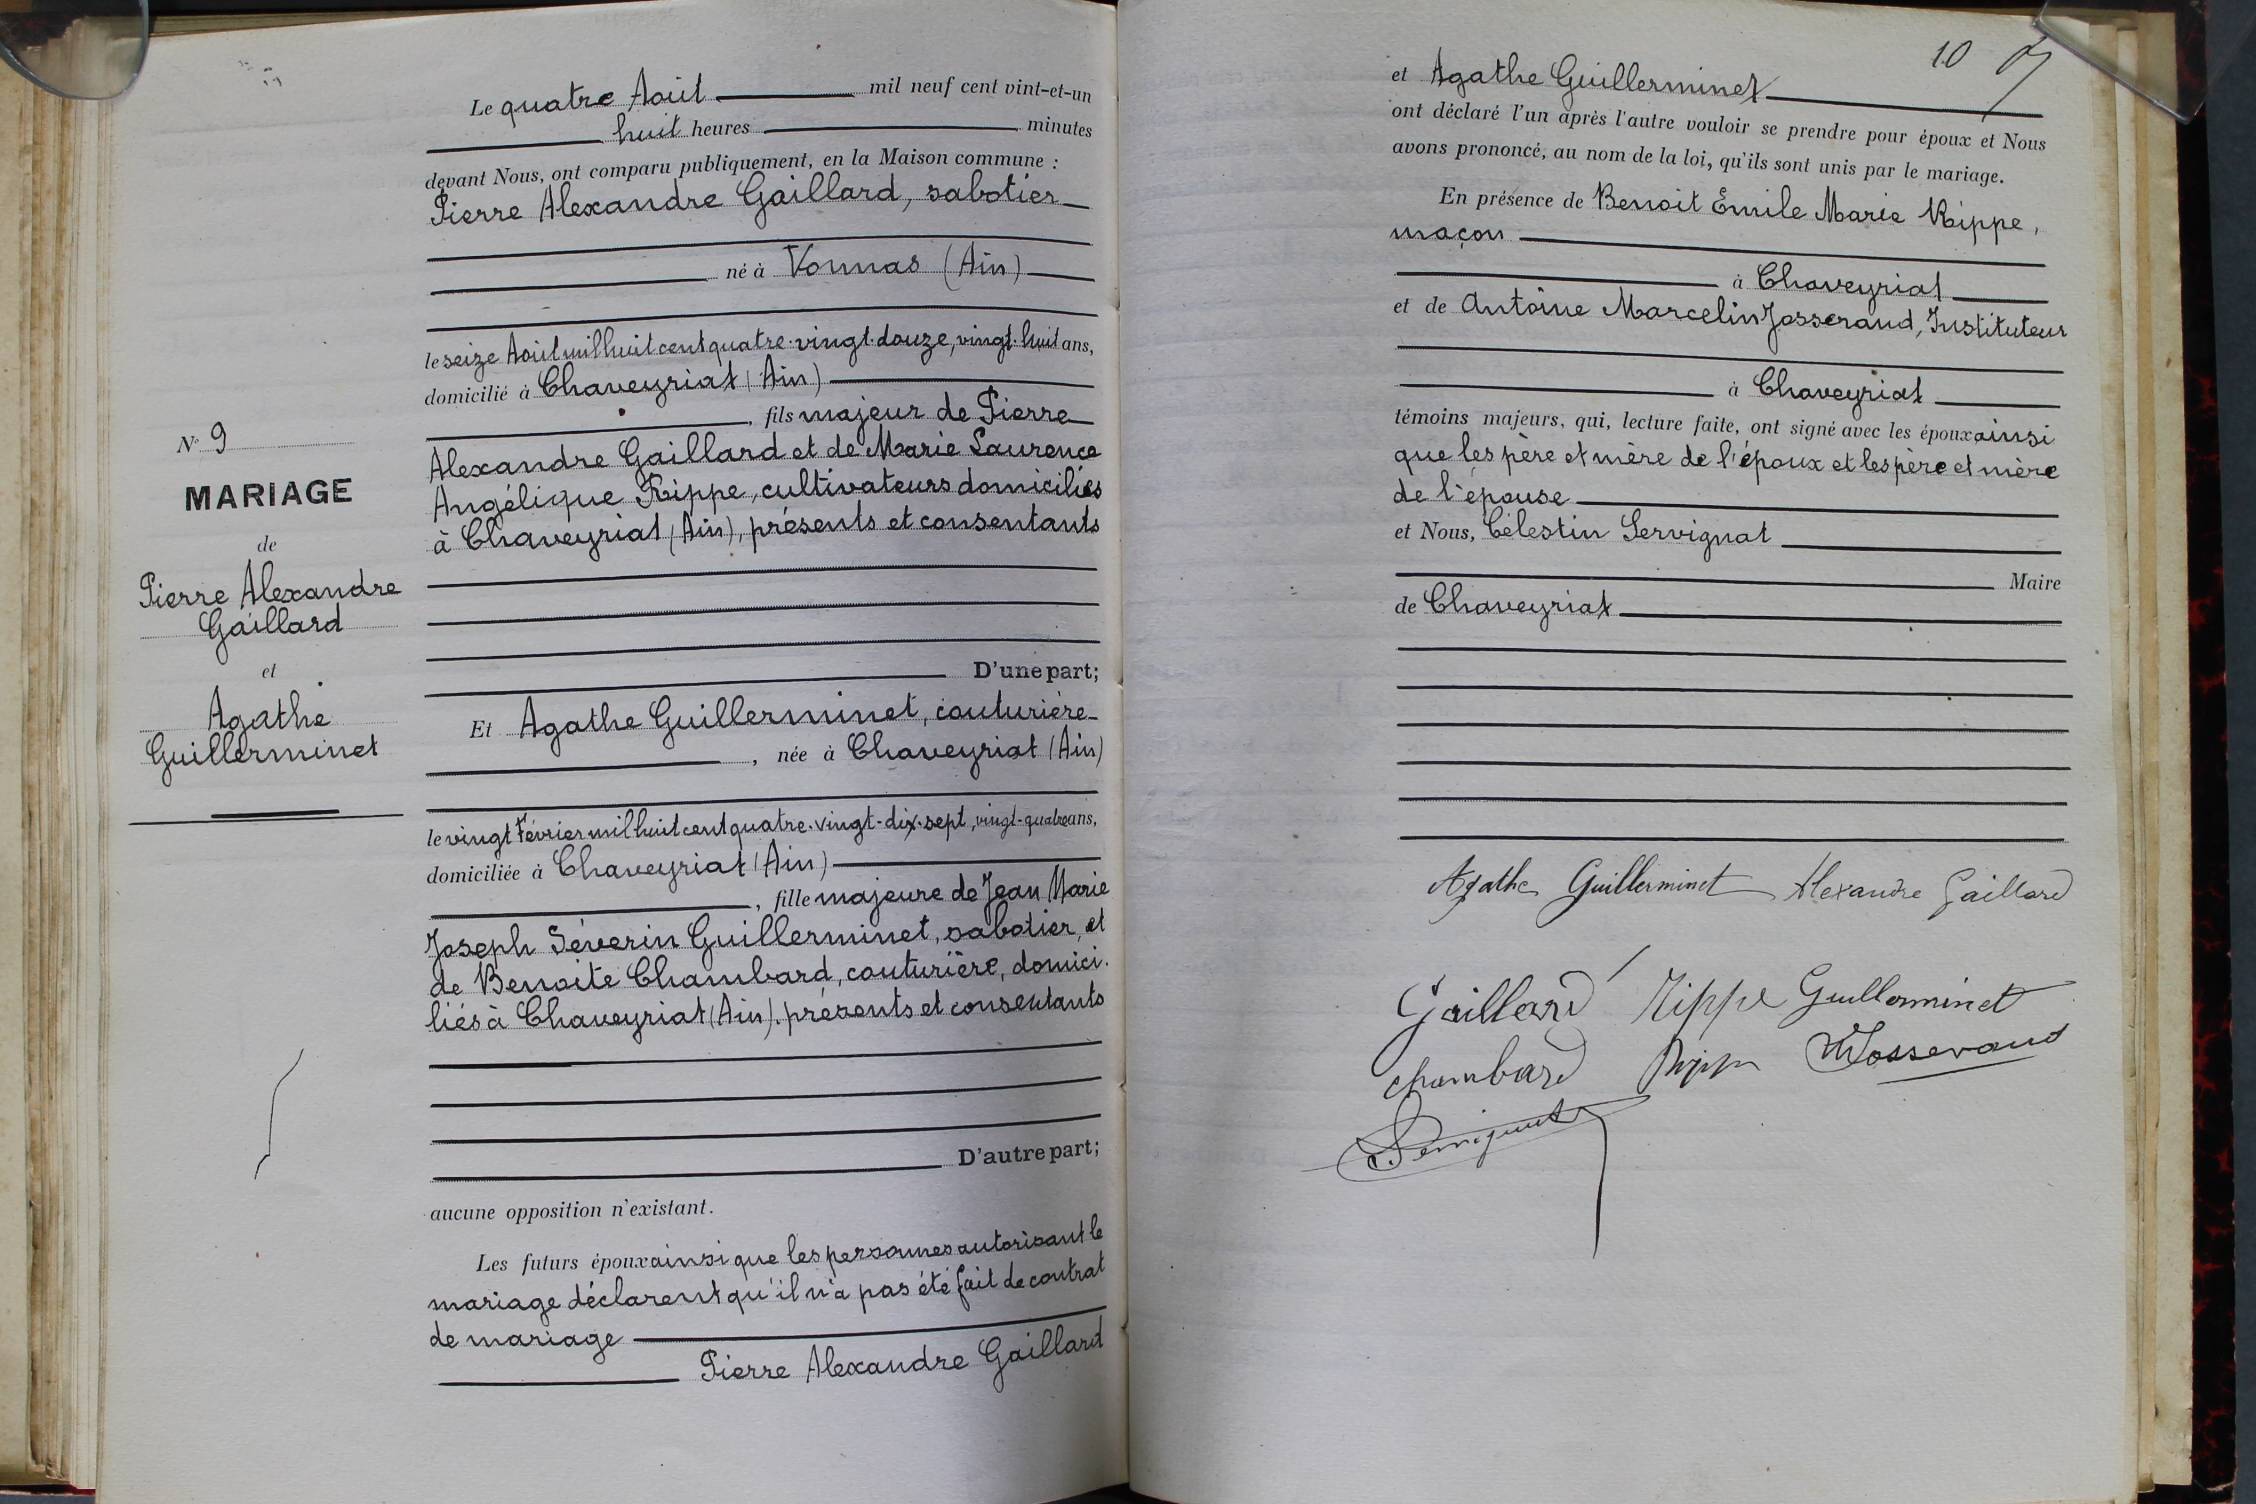 N° 9
MARIAGE
de
Pierre Alexandre
Gaillard
et
Agathe
Guillerminet
Le quatre Août mil neuf cent vint-et-un
huit heures minutes
devant Nous, ont comparu publiquement, en la Maison commune :
Pierre Alexandre Gaillard, sabotier
né à Vonnas (Ain)
le seize Août mil huit cent quatre-vingt-douze, vingt-huit ans,
domicilié à Chaveyriat (Ain)
, fils majeur de Pierre
Alexandre Gaillard et de Marie Laurence
Angélique Rippe, cultivateurs domiciliés
à Chaveyriat (Ain), présents et consentants
D'une part;
Et Agathe Guillerminet, couturière
, née à Chaveyriat (Ain)
le vingt Février mil huit cent quatre-vingt-dix-sept, vingt-quatre ans,
domiciliée à Chaveyriat (Ain)
, fille majeure de Jean Marie
Joseph Séverin Guillerminet, sabotier, et
de Benoite Chambard, couturière, domici-
liés à Chaveyriat (Ain), présents et consentants
D'autre part;
aucune opposition n'existant.
Les futurs époux ainsi que les personnes autorisant le
mariage déclarent qu'il n'a pas été fait de contrat
de mariage
Pierre Alexandre Gaillard
10
et Agathe Guillerminet
ont déclaré l'un après l'autre vouloir se prendre pour époux et Nous
avons prononcé, au nom de la loi, qu'ils sont unis par le mariage.
En présence de Benoit Emile Marie Rippe,
maçon
à Chaveyriat
et de Antoine Marcelin Josserand, Instituteur
à Chaveyriat
témoins majeurs, qui, lecture faite, ont signé avec les époux ainsi
que les père et mère de l'époux et les père et mère
de l'épouse
et Nous, Célestin Servignat
Maire
de Chaveyriat
Agathe Guillerminet Alexandre Gaillard
Gaillard Rippe Guillerminet
Chambard Rippe Josserand
Servignat